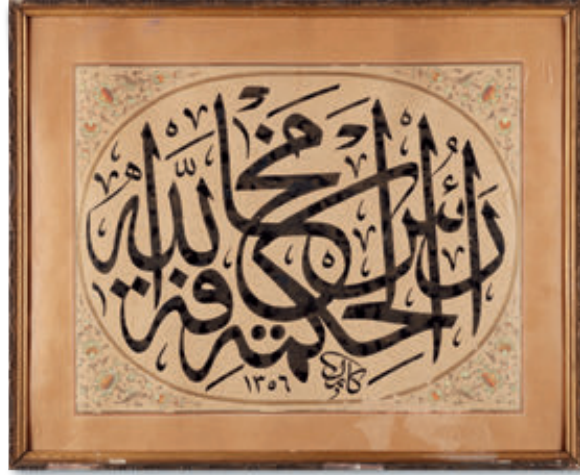 رأس الحكمة مخافة الله
١٣٥٦